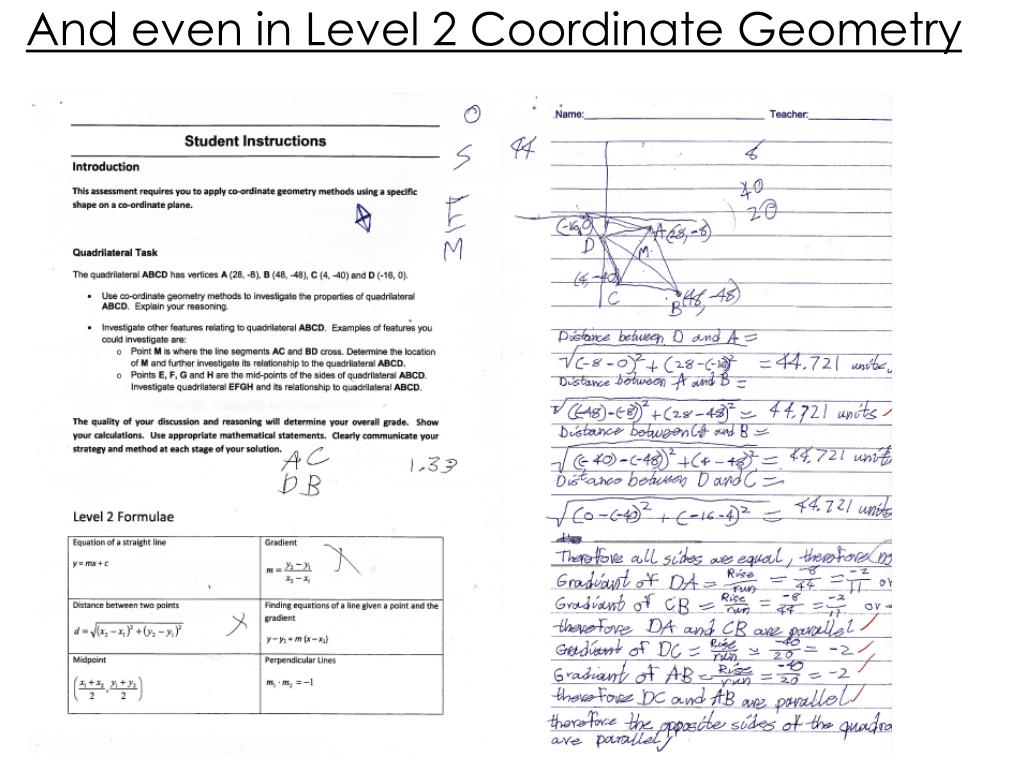 And even in Level 2 Coordinate Geometry
Student Instructions
Introduction
This assessment requires you to apply co-ordinate geometry methods using a specific
shape on a co-ordinate plane.
Quadrilateral Task
The quadrilateral ABCD has vertices A (28, -8), B (48, -48), C (4, -40) and D (-16, 0).
• Use co-ordinate geometry methods to investigate the properties of quadrilateral
ABCD. Explain your reasoning.
• Investigate other features relating to quadrilateral ABCD. Examples of features you
could investigate are:
o Point M is where the line segments AC and BD cross. Determine the location
of M and further investigate its relationship to the quadrilateral ABCD.
o Points E, F, G and H are the mid-points of the sides of quadrilateral ABCD.
Investigate quadrilateral EFGH and its relationship to quadrilateral ABCD.
The quality of your discussion and reasoning will determine your overall grade. Show
your calculations. Use appropriate mathematical statements. Clearly communicate your
strategy and method at each stage of your solution.
AC
DB
1.33
O
S
E
M
Level 2 Formulae
Equation of a straight line
y = mx + c
Gradient
m = (y₂ − y₁)/(x₂ − x₁)
Distance between two points
d = √((x₂ − x₁)² + (y₂ − y₁)²)
Finding equations of a line given a point and the
gradient
y − y₁ = m (x − x₁)
Midpoint
((x₁ + x₂)/2, (y₁ + y₂)/2)
Perpendicular Lines
m₁ · m₂ = −1
Name:
Teacher:
44
8
40
20
(-16,0)
D
A(28,-8)
M
(4,-40)
C
B(48,-48)
Distance between D and A =
√(-8-0)² + (28-(-16)² = 44.721 units
Distance between A and B =
√((-48)-(-8))² + (28-48)² = 44.721 units
Distance between and B =
√((-40)-(-48))² + (4-48)² = 44.721 unit
Distance between D and C =
√(0-(-40)² + (-16-4)² = 44.721 units
Therefore all sides are equal, therefore
Gradiant of DA = Rise/run = -8/44 = -2/11 or
Gradiant of CB = Rise/run = -8/44 = -2/11 or -
therefore DA and CB are parallel
Gradiant of DC = Rise/run = -40/20 = -2
Gradiant of AB = Rise/run = -40/20 = -2
therefore DC and AB are parallel
therefore the opposite sides of the quadra
are parallel